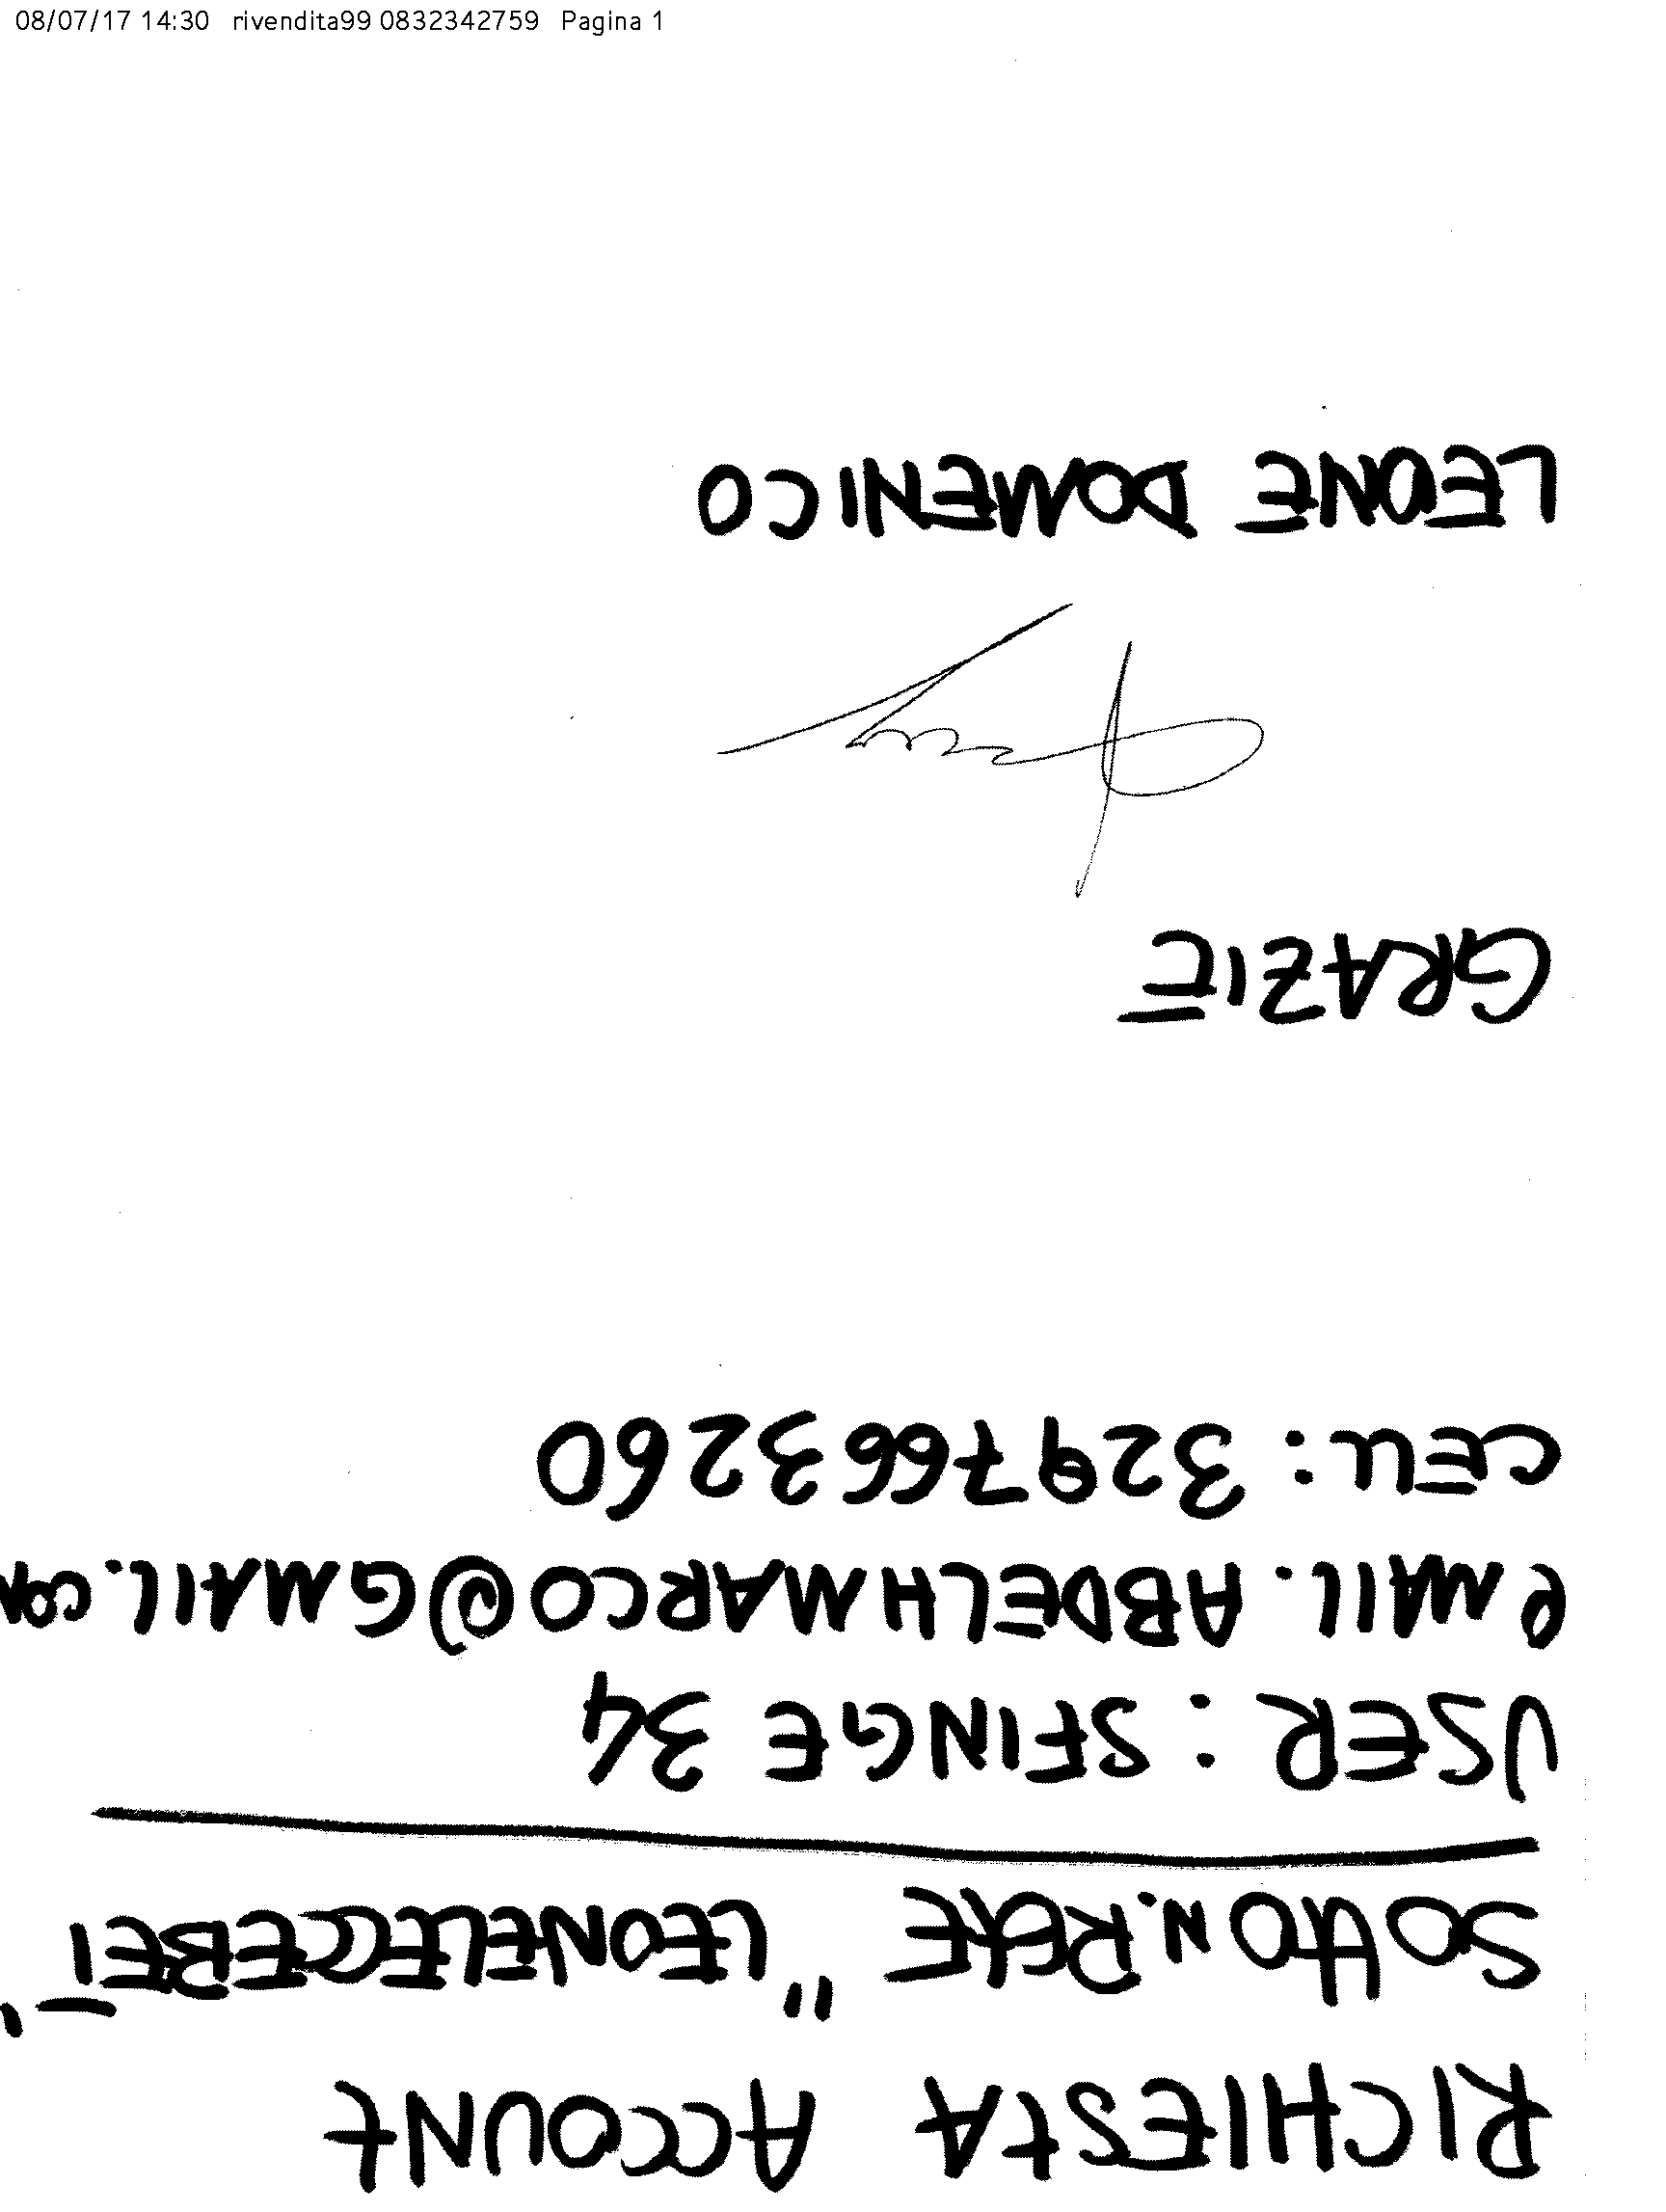 08/07/17 14:30 rivendita99 0832342759 Pagina 1
RICHIESTA ACCOUNT
SOTTO N. RETE "LEONELECCEBET"
USER: SFINGE 34
e MAIL. ABDELHMARCO@GMAIL.COM
CELL: 3297663260
GRAZIE
LEONE DOMENICO